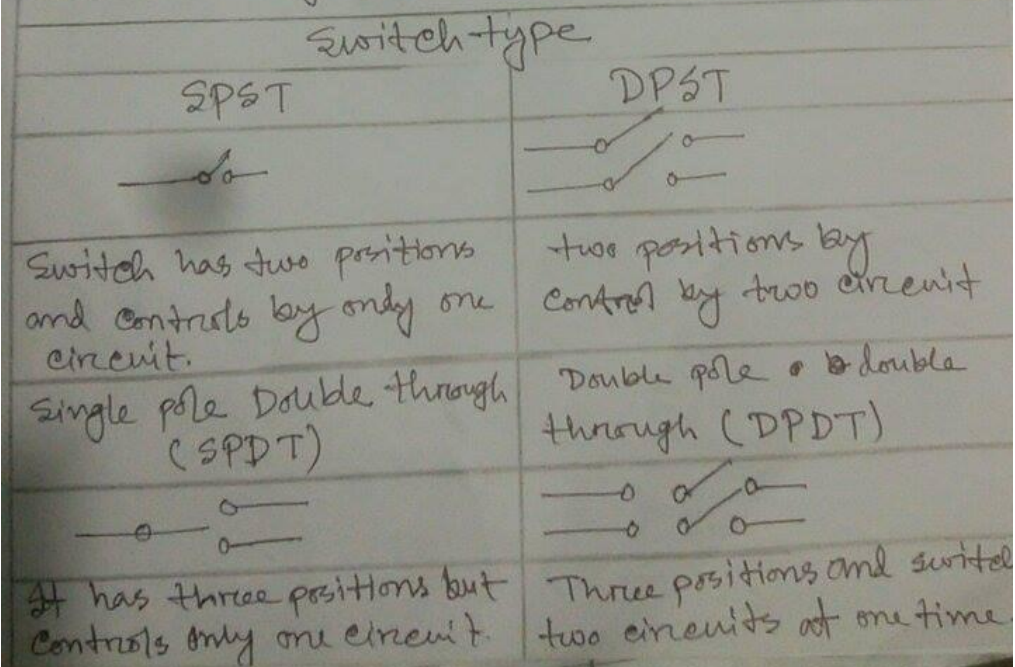 Switch type
SPST
DPST
Switch has two positions
and controls by only one
circuit.
two positions by
control by two circuit
Single pole Double through
(SPDT)
Double pole double
through (DPDT)
It has three positions but
controls only one circuit.
Three positions and switch
two circuits at one time.